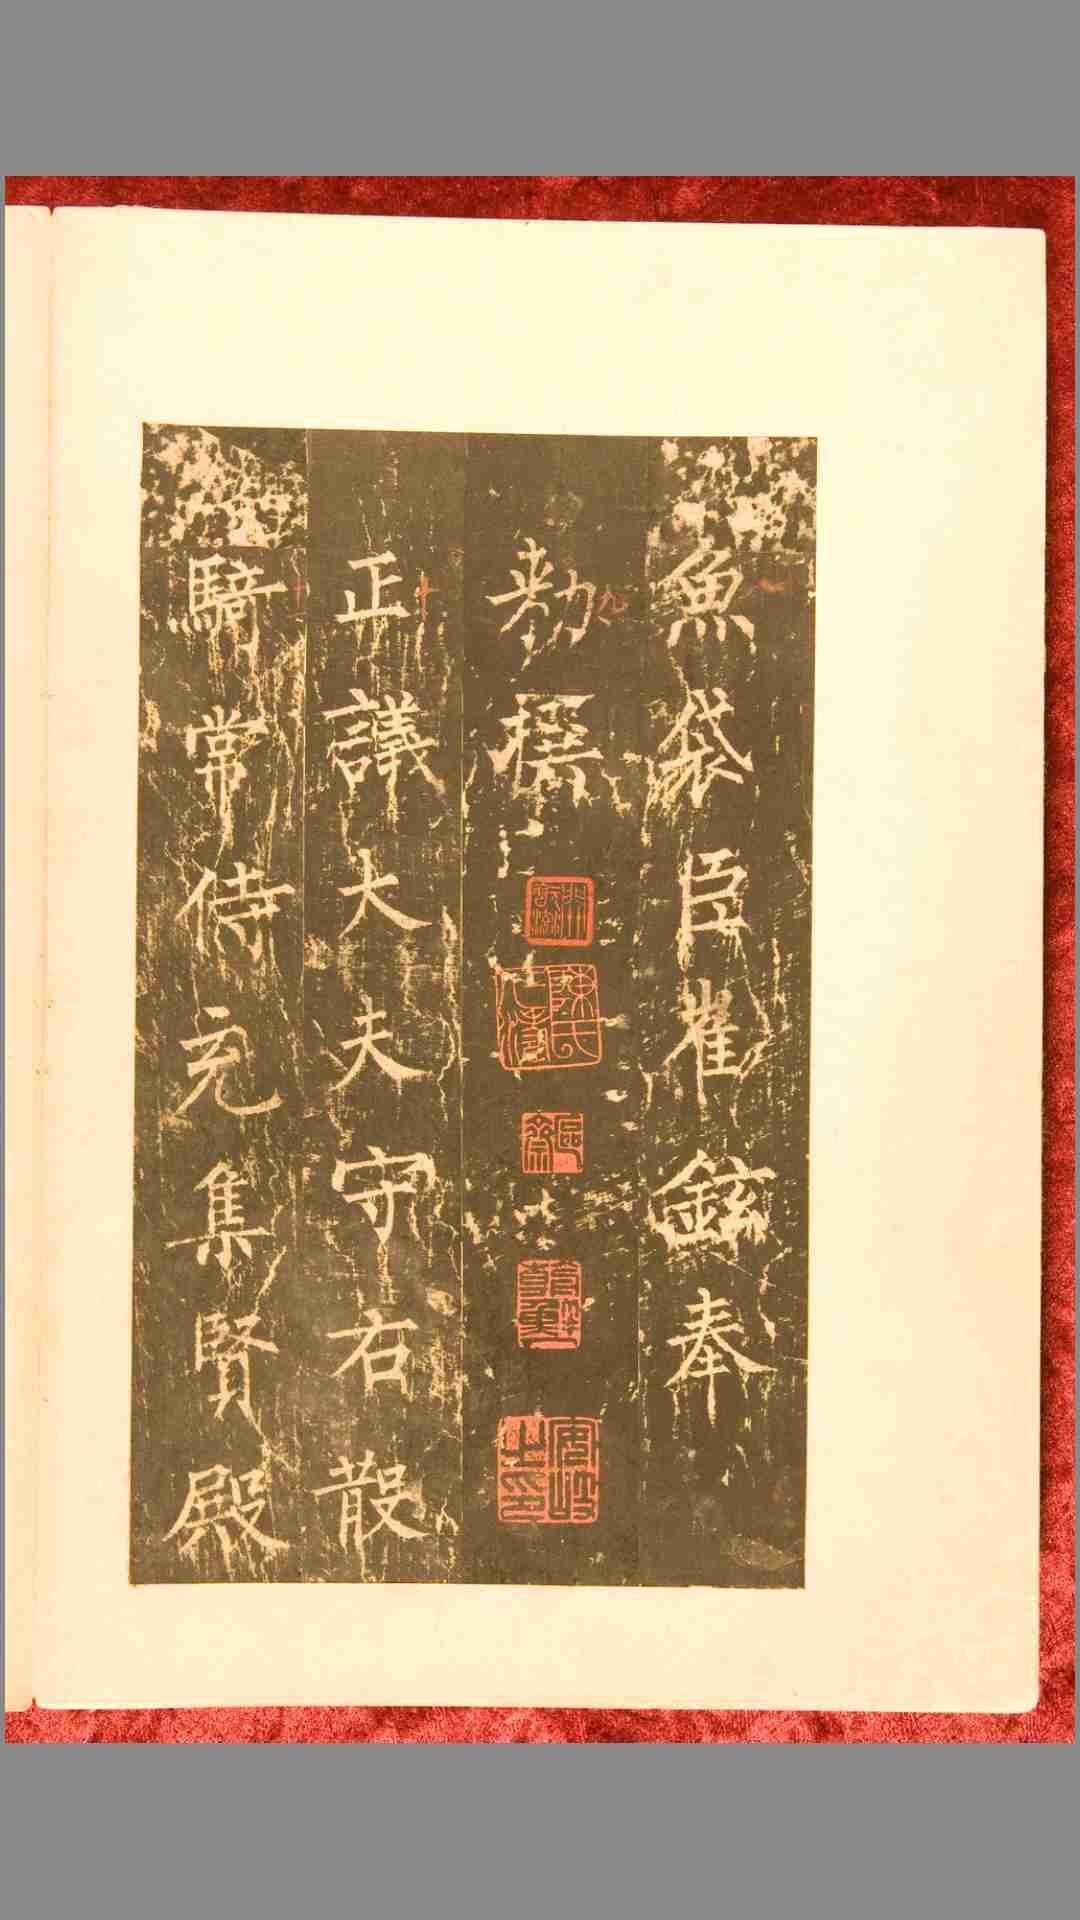 魚袋臣崔鉉奉
勑撰
正議大夫守右散
騎常侍充集賢殿
安岐之印